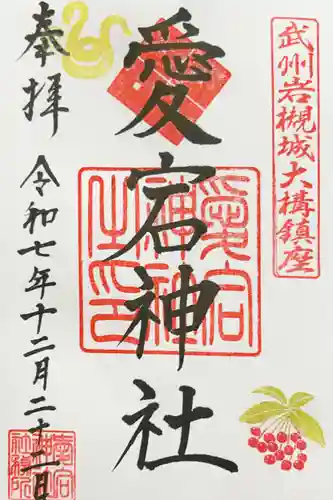 武州岩槻城大構鎮座
愛宕神社
愛宕神社之印
奉拝
令和七年十二月二十二日